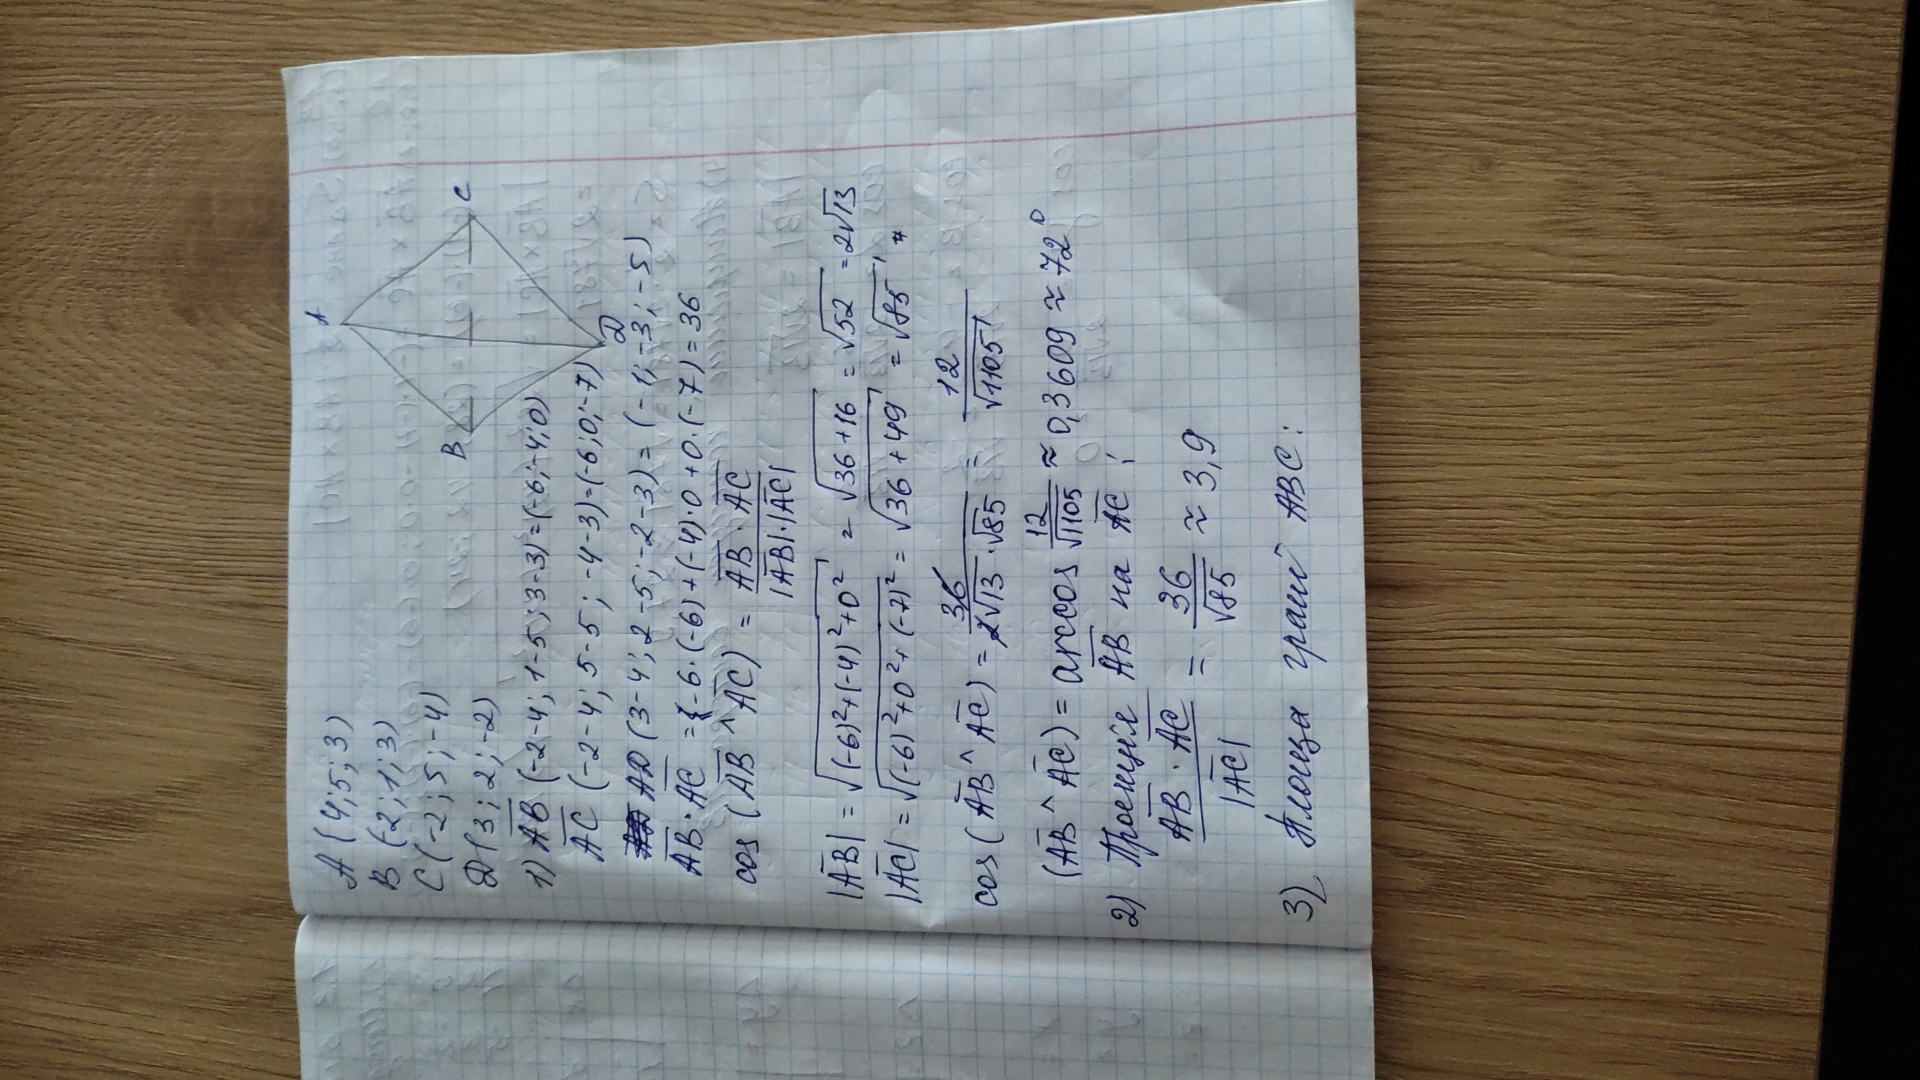 A (4; 5; 3)
B (-2; 1; 3)
C (-2; 5; -4)
D (3; 2; -2)
A
B
C
D
1) AB (-2-4; 1-5; 3-3) = (-6; -4; 0)
AC (-2-4; 5-5; -4-3) = (-6; 0; -7)
AD (3-4; 2-5; -2-3) = (-1; -3; -5)
AB · AC = -6·(-6)+(-4)·0+0·(-7) = 36
cos (AB ^ AC) = AB · AC / |AB|·|AC|
|AB| = √(-6)²+(-4)²+0² = √36+16 = √52 = 2√13
|AC| = √(-6)²+0²+(-7)² = √36+49 = √85
cos (AB ^ AC) = 36 / 2√13 · √85 = 12 / √1105
(AB ^ AC) = arccos 12 / √1105 ≈ 0,3609 ≈ 72°
2) Проекція AB на AC:
AB · AC / |AC| = 36 / √85 ≈ 3,9
3) Площа грані ABC: